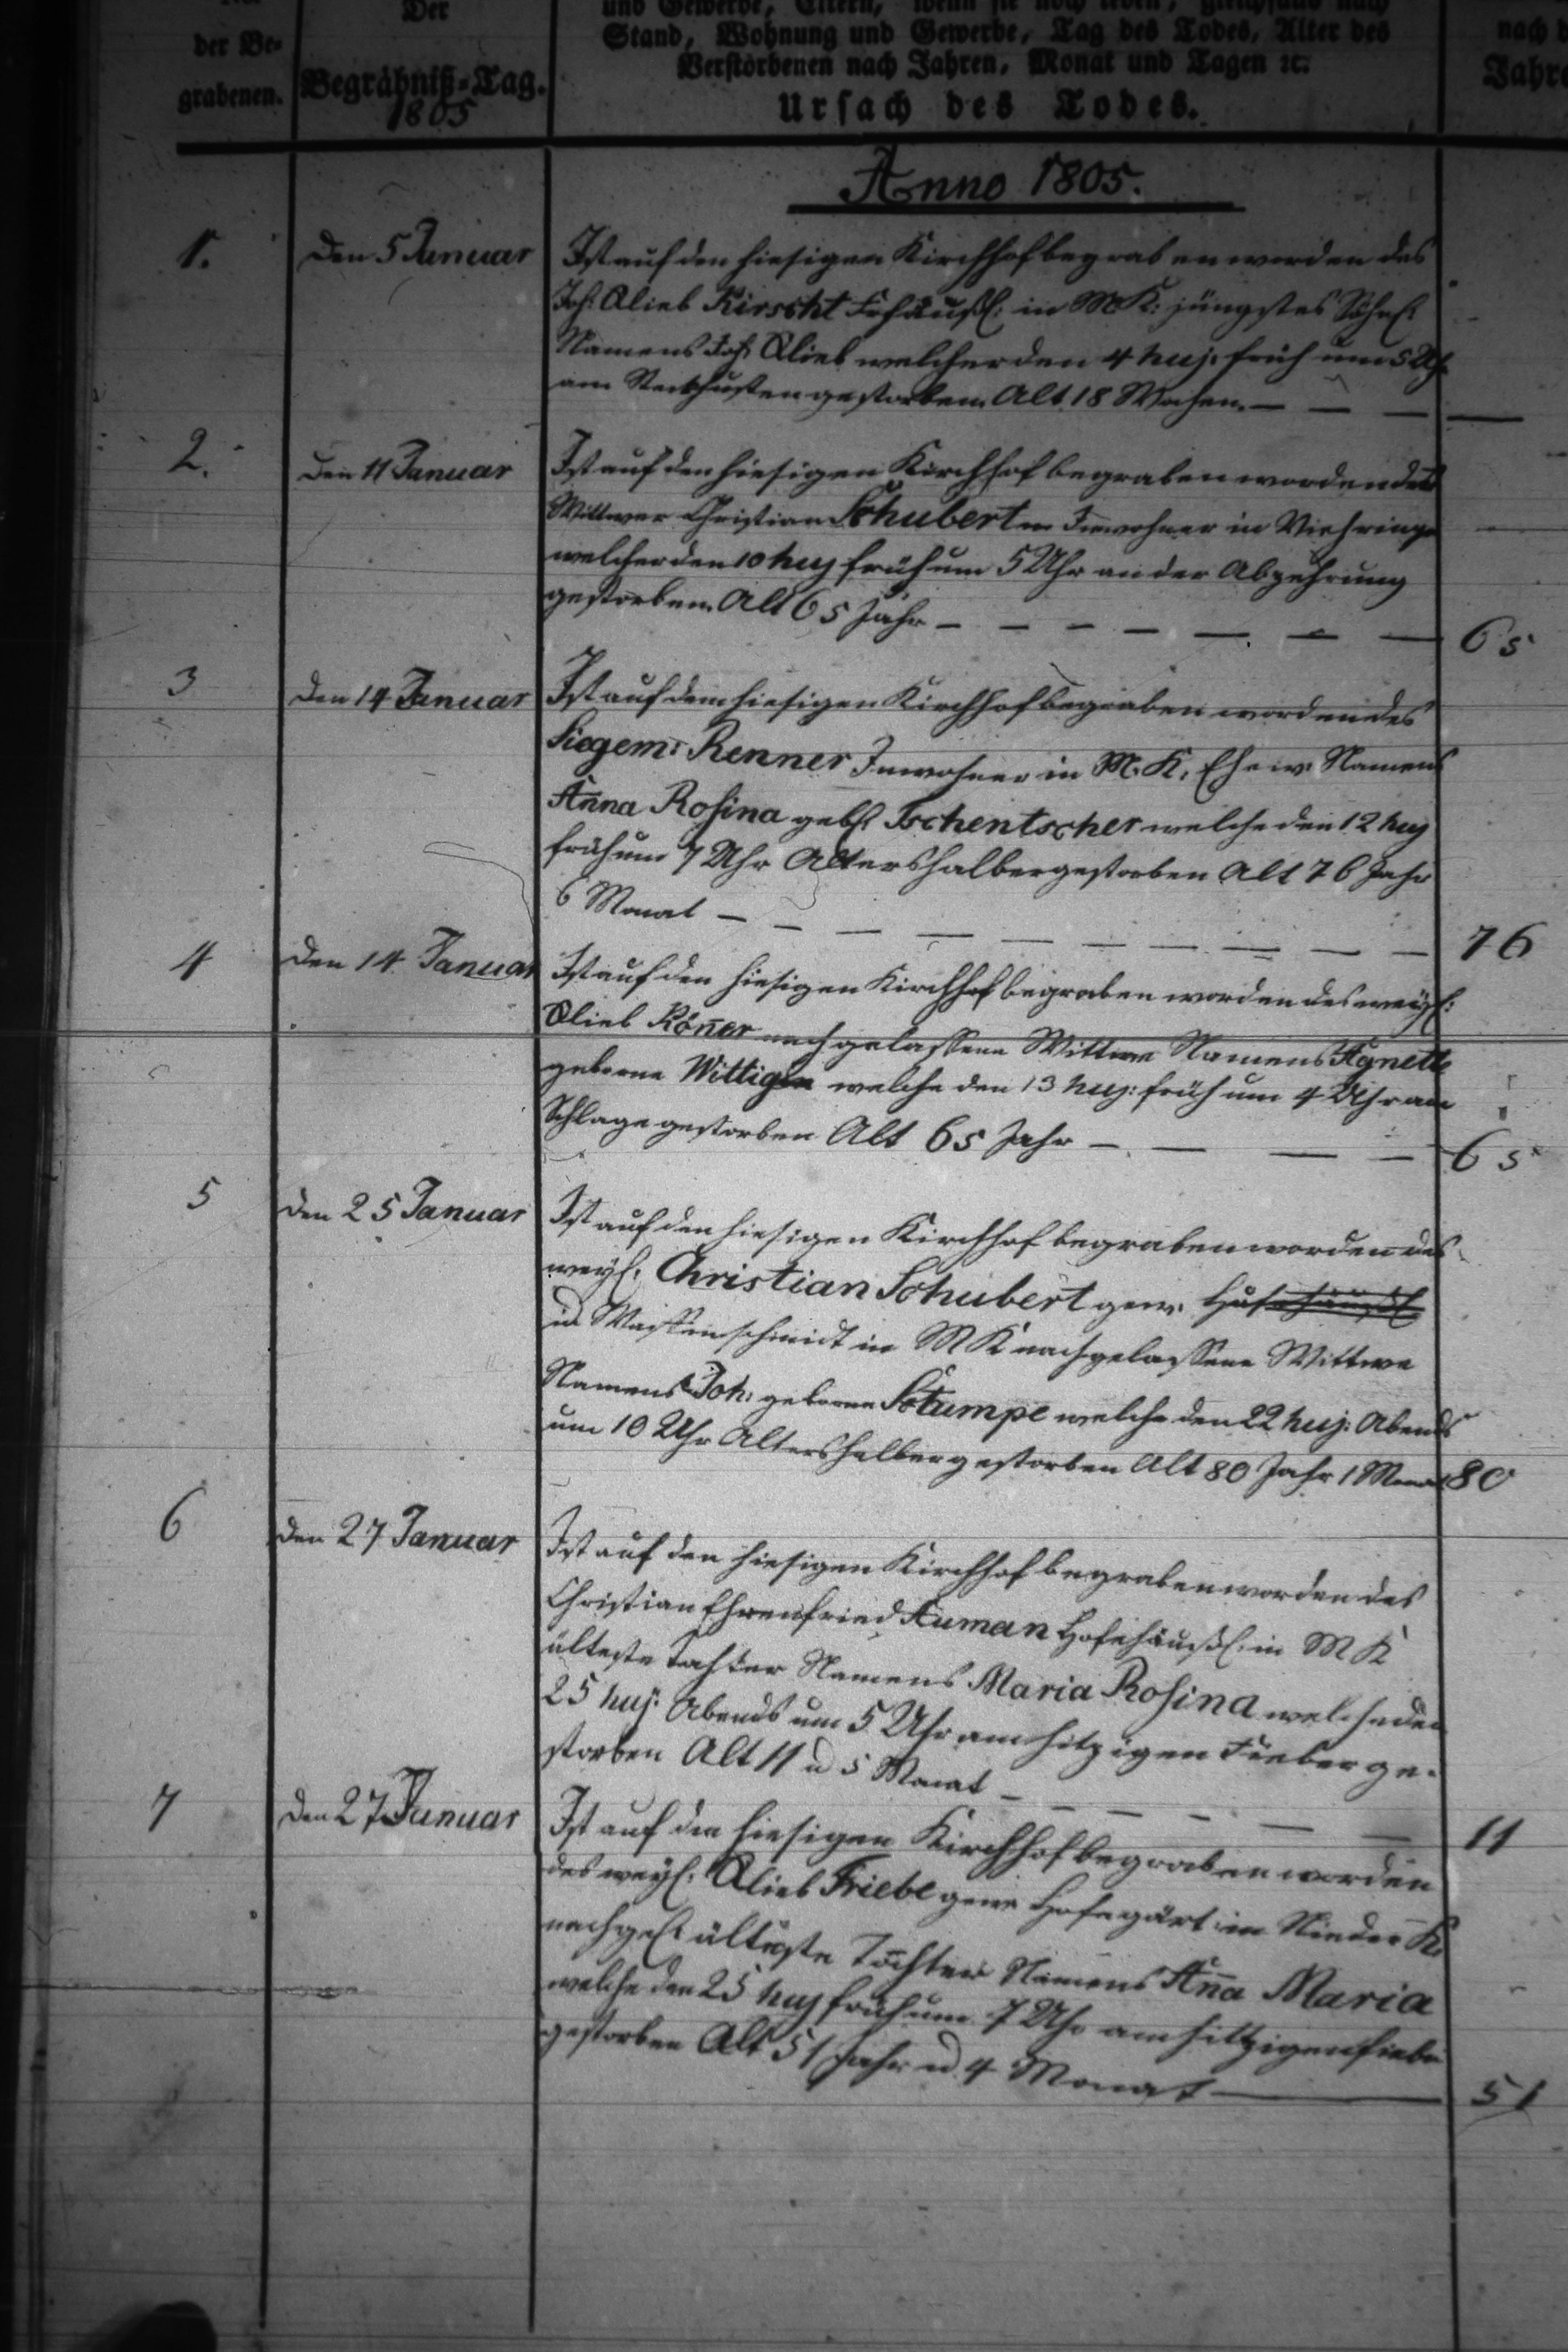 Der
und Gewerbe, Eltern, wenn sie noch leben, gleichfalls nach
der Be-
Stand, Wohnung und Gewerbe, Tag des Todes, Alter des
nach
grabenen.
Begräbniß-Tag.
Verstorbenen nach Jahren, Monat und Tagen ꝛc.
Jahre
1805
Ursach des Todes.
Anno 1805.
1.
Den 5 Januar
Ist auf den hiesigen Kirchhof begraben worden des
Joh: Glieb Kirscht Frhäußl: in M K: jüngstes Söhnl:
Namens Joh: Glieb welcher den 4 huj: früh um 5 Uhr
am Steckhusten gestorben. Alt 18 Wochen.
2.
Den 11 Januar
Ist auf den hiesigen Kirchhof begraben worden der
Wittwer Christian Schubert Inwohner in
welcher den 10 huj früh um 5 Uhr an der Abzehrung
gestorben. Alt 65 Jahr
65
3
Den 14 Januar
Ist auf dem hiesigen Kirchhof begraben worden des
Siegem: Renner Inwohner in M. K. Ehew. Namens
Anna Rosina geb: Tschentscher welche den 12 huj
früh um 7 Uhr Altershalber gestorben Alt 76 Jahr
6 Monat
76
4
Den 14. Januar
Ist auf den hiesigen Kirchhof begraben worden des weyl:
Glieb Röner nachgelassene Wittwe Namens Agnette
geborne Wittigin welche den 13 huj: früh um 4 Uhr am
Schlage gestorben Alt 65 Jahr
65
5
Den 25 Januar
Ist auf den hiesigen Kirchhof begraben worden des
weyl: Christian Schubert gew.
u Waffenschmidt in M K nachgelassene Wittwe
Namens Joh: geborne Stumpe welche den 22 huj: Abends
um 10 Uhr Altershalber gestorben Alt 80 Jahr 1 Monat
80
6
Den 27 Januar
Ist auf den hiesigen Kirchhof begraben worden des
Christian Ehrenfried Auman Hofehäußl: in M K
älteste Tochter Namens Maria Rosina welche den
25 huj: Abends um 5 Uhr am hitzigen Fieber ge-
storben Alt 11 u 5 Monat
11
7
Den 27 Januar
Ist auf den hiesigen Kirchhof begraben worden
des weyl: Glieb Friebe gew Hofegärt: in Nieder K
nachgl: älteste Tochter Namens Aña Maria
welche den 25 huj früh um 7 Uhr am hitzigen fieber
gestorben Alt 51 Jahr u 4 Monat
51